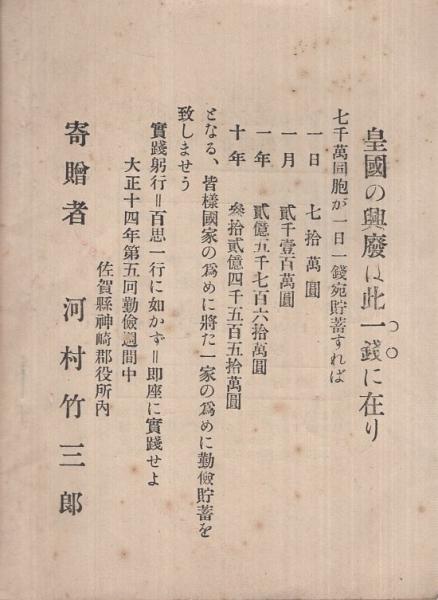 皇國の興廢は此一錢に在り
七千萬同胞が一日一錢宛貯蓄すれば
一日　七拾萬圓
一月　貳千壹百萬圓
一年　貳億五千七百六拾萬圓
十年　參拾貳億四千五百五拾萬圓
となる、皆樣國家の爲めに將た一家の爲めに勤儉貯蓄を
致しませう
實踐躬行＝百思一行に如かず＝即座に實踐せよ
大正十四年第五回勤儉週間中
佐賀縣神崎郡役所內
寄贈者　河村竹三郎